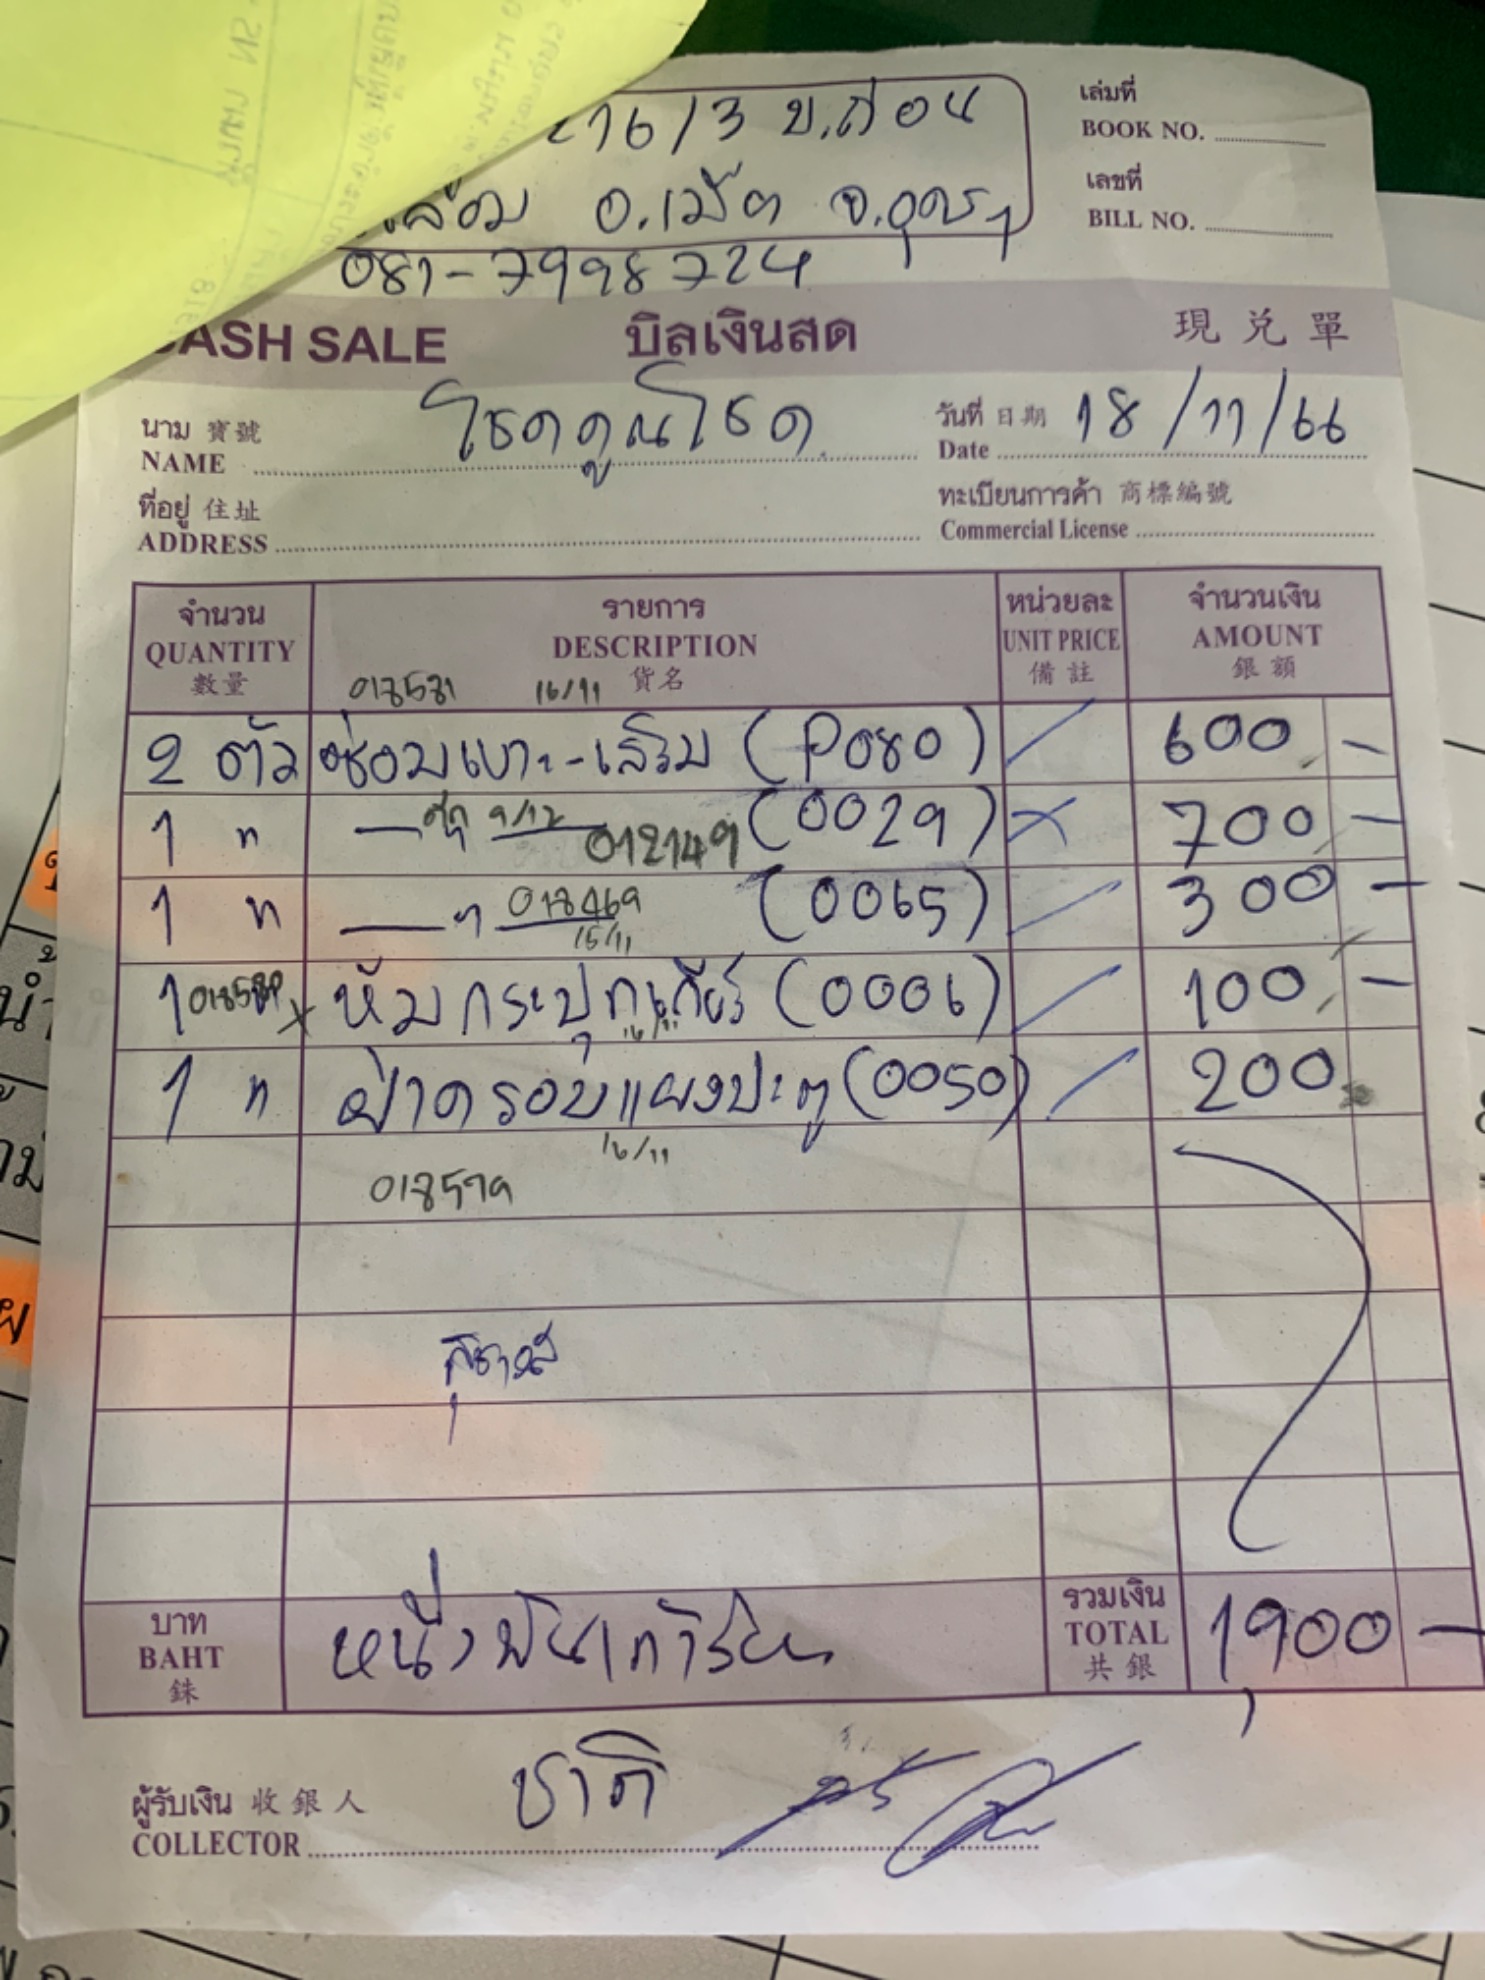 276/3 ข.ส 04
อ.เมือง จ.อุดรฯ
081-7998724
CASH SALE บิลเงินสด 現兑單
เล่มที่
BOOK NO.
เลขที่
BILL NO.
นาม 寶號 NAME โชคคูณโชค
วันที่ 日期 Date 18/11/66
ที่อยู่ 住址 ADDRESS
ทะเบียนการค้า 商標編號 Commercial License
จำนวน QUANTITY 數量
รายการ DESCRIPTION 貨名
หน่วยละ UNIT PRICE 備註
จำนวนเงิน AMOUNT 銀額
018581 16/11
2 ตัว ซ่อมเบาะ-เสริม (P080) / 600 -
1 " —ตัด 9/12— 012149 (0029) × 700 -
1 " —"— 018469 (0065) / 300 -
15/11
1 หุ้มกระปุกเกียร์ (0006) / 100 -
16/11
1 " ฝาครอบแผงประตู (0050) / 200
16/11
018579
บาท BAHT 銖 หนึ่งพันเก้าร้อย
รวมเงิน TOTAL 共銀 1,900 -
ผู้รับเงิน 收銀人 COLLECTOR ชาติ